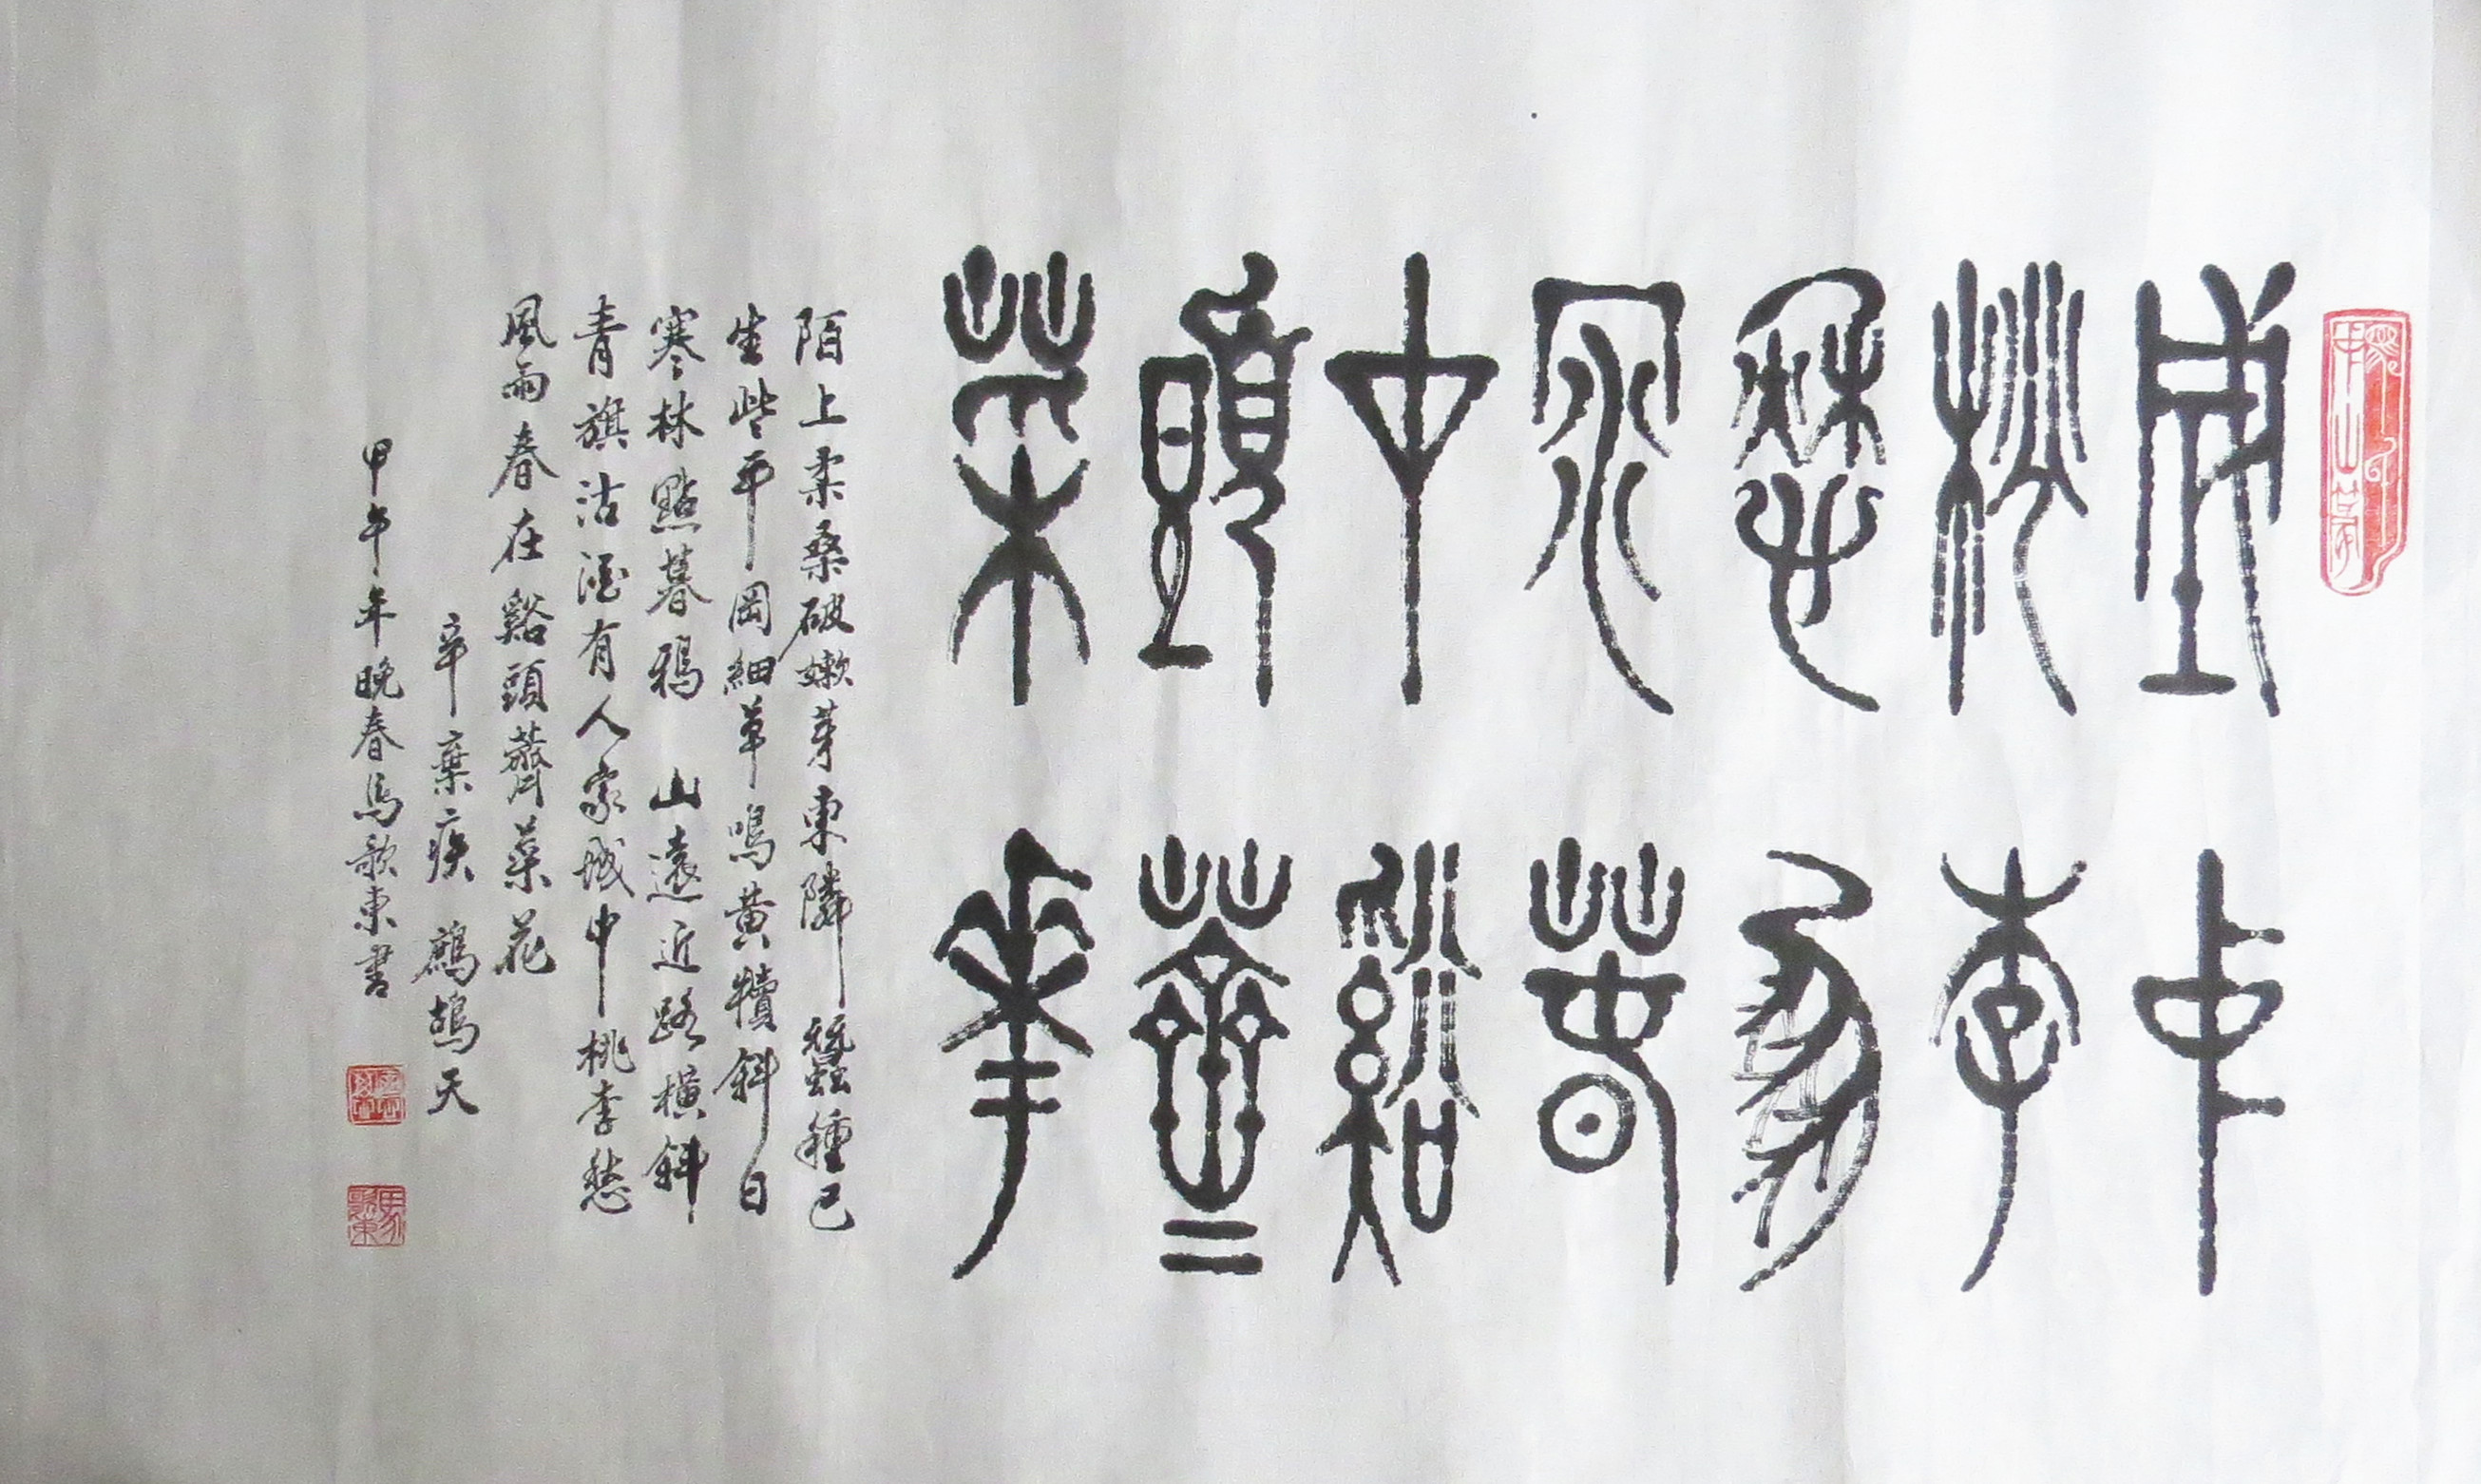 城中
桃李
愁風
雨春
在谿
頭薺
菜華
陌上柔桑破嫩芽東隣蠶種已
生些平岡細草鳴黃犢斜日
寒林點暮鴉 山遠近路橫斜
青旗沽酒有人家城中桃李愁
風雨春在谿頭薺菜花
辛棄疾 鷓鴣天
甲午年晚春馬歌東書
馬歌東